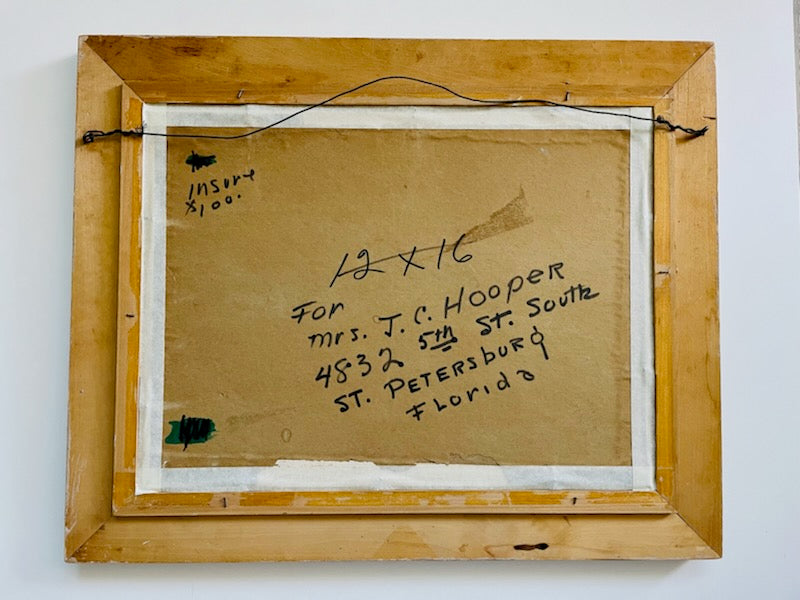 Insure
$100.
12 X 16
For
Mrs. J. C. Hooper
4832 5th St. South
St. Petersburg
Florida